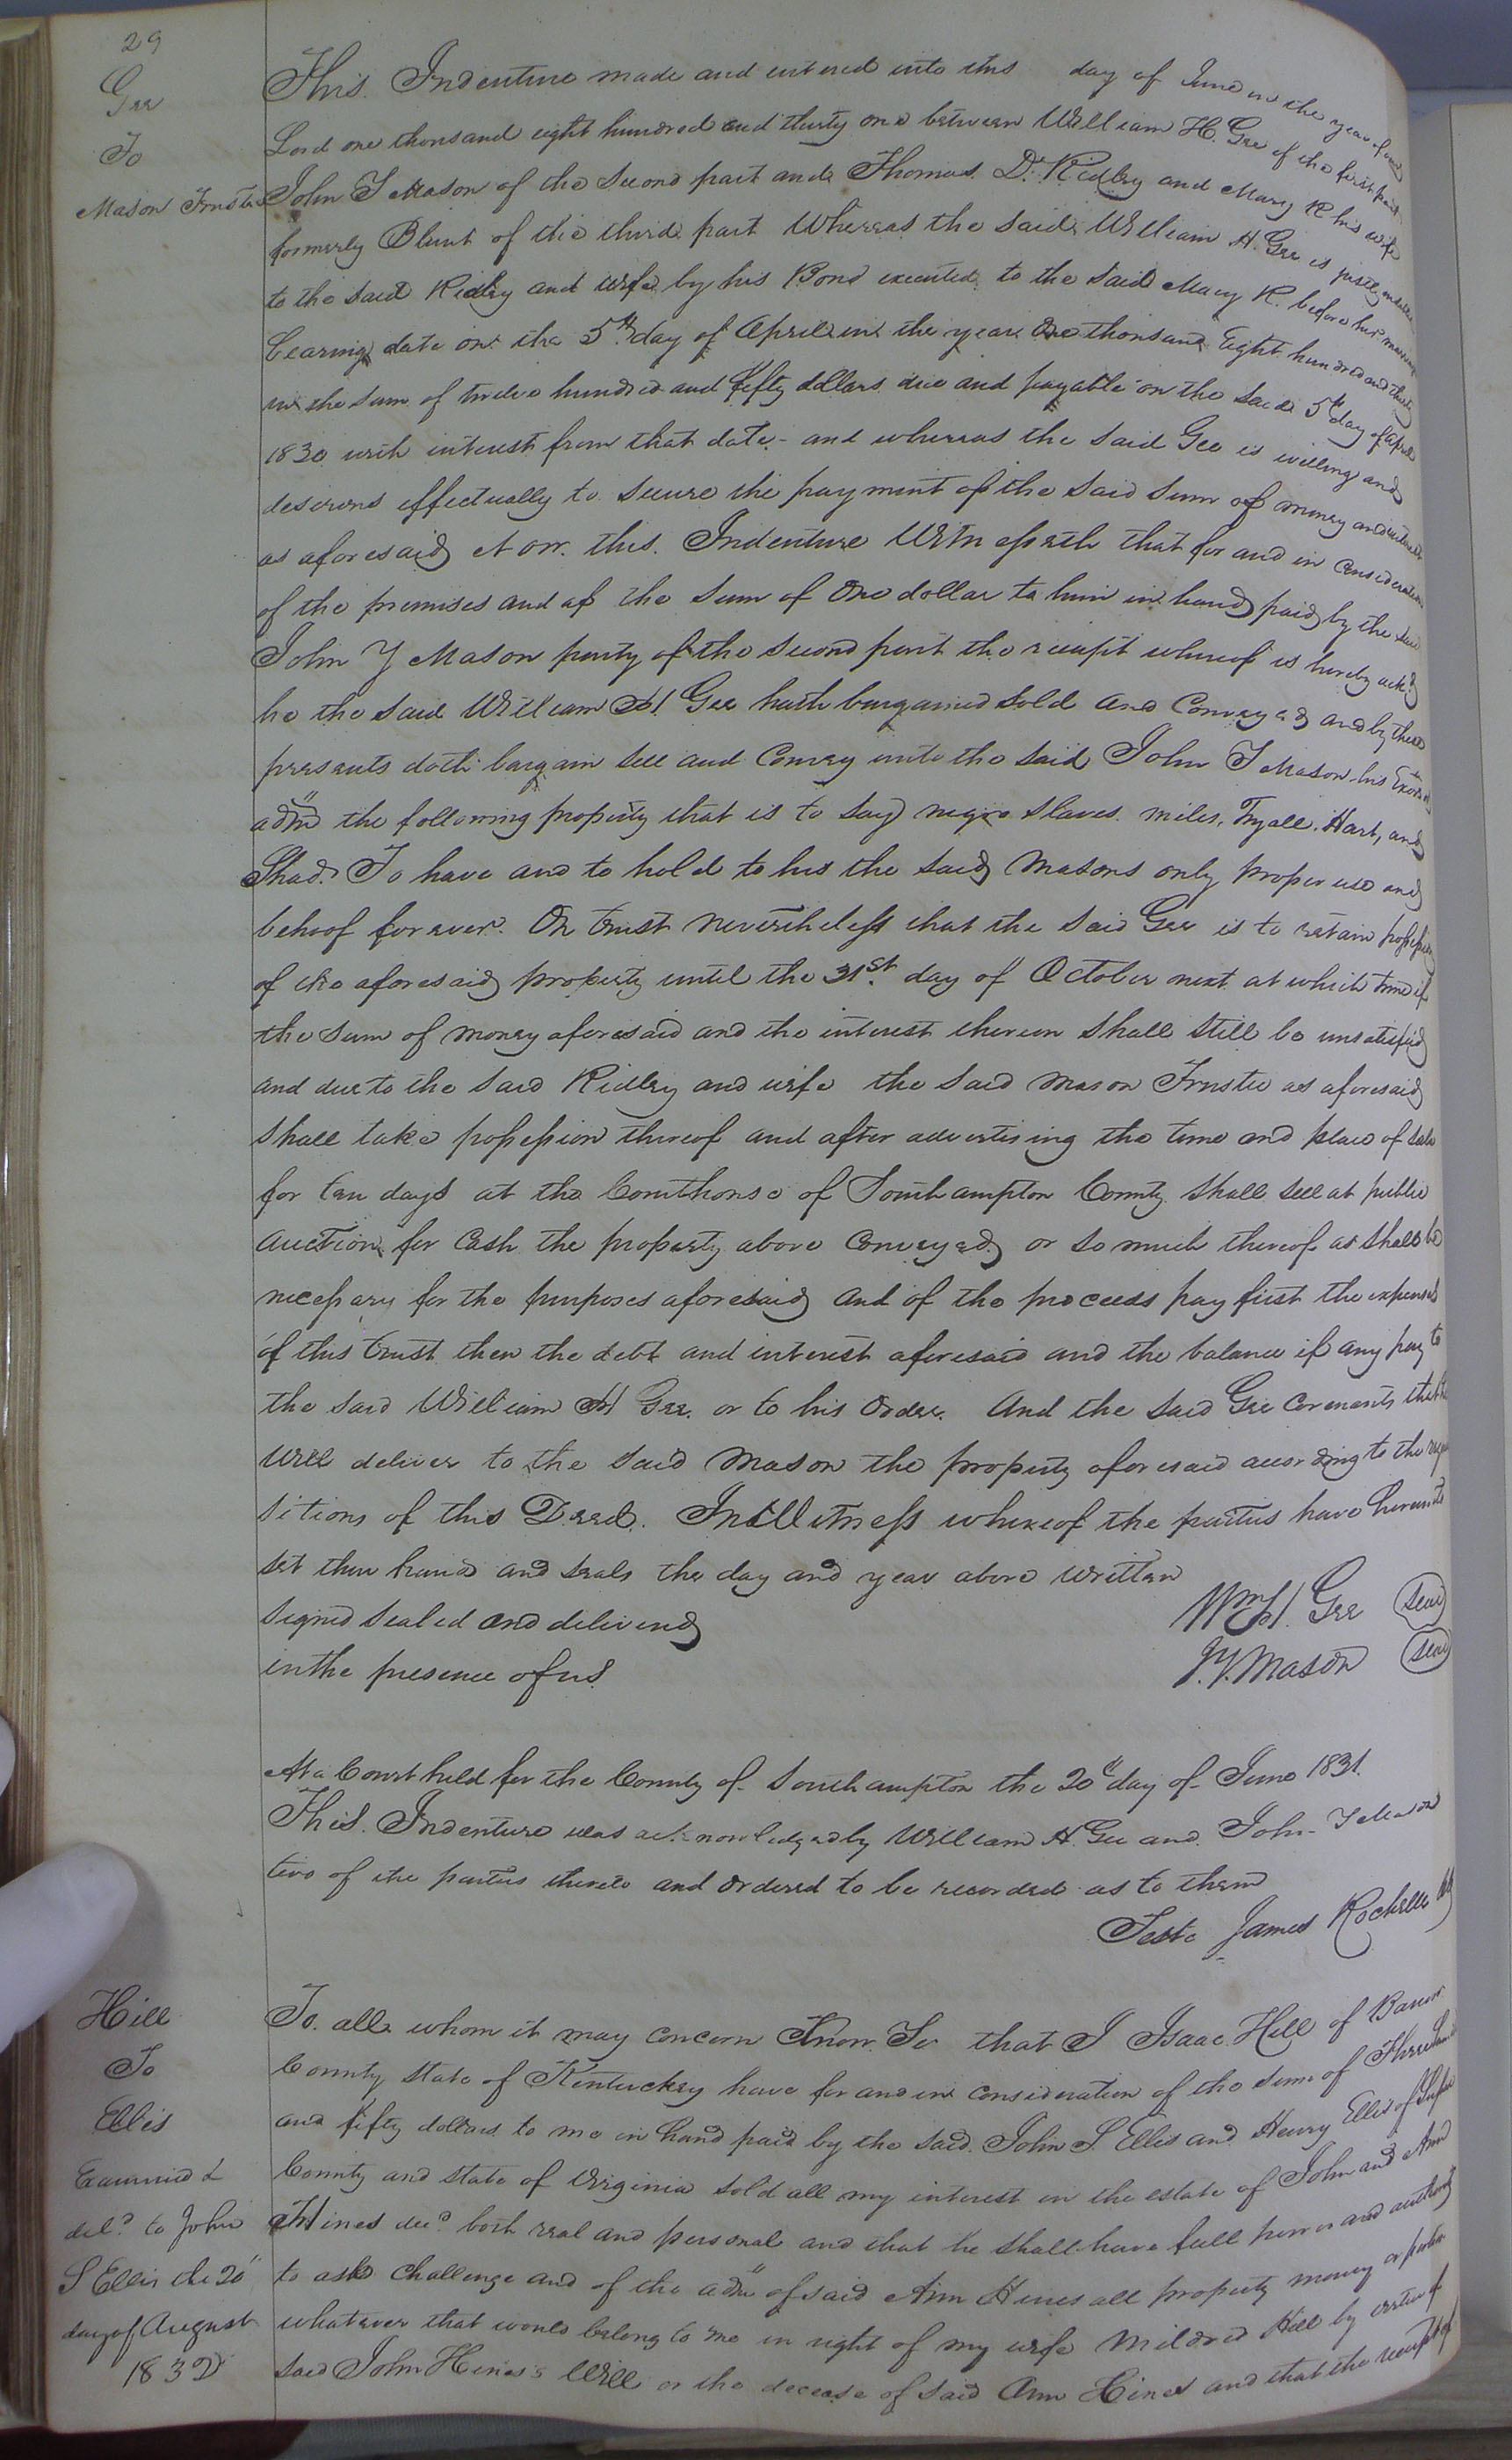 29
Gee
To
Mason Trustee
This Indenture made and entered into this day of June in the year of our
Lord one thousand eight hundred and thirty one between William H. Gee of the first part
John Y Mason of the Second part and Thomas D. Ridley and Mary R his wife
formerly Blunt of the third part Whereas the said William H. Gee is justly indebted
to the said Ridley and wife by his Bond executed to the said Mary R. before her marriage
bearing date on the 5th day of April in the year One thousand Eight hundred and thirty
in the sum of twelve hundred and fifty dollars due and payable on the said 5th day of April
1830 with interest from that date - and whereas the said Gee is willing and
desirous effectually to secure the payment of the said sum of money and interest
as aforesaid Now this Indenture Witnesseth that for and in Consideration
of the premises and of the sum of One dollar to him in hand paid by the said
John Y Mason party of the second part the receipt whereof is hereby ackd
he the said William H Gee hath bargained sold and Conveyed and by these
presents doth bargain sell and Convey unto the said John Y Mason his Exors &
admr the following property that is to say negro slaves miles, Tryall, Hart, and
Shad. To have and to hold to his the said Masons only proper use and
behoof forever. On trust nevertheless that the said Gee is to retain possession
of the aforesaid property until the 31st day of October next at which time if
the sum of money aforesaid and the interest thereon shall still be unsatisfied
and due to the said Ridley and wife the said Mason Trustee as aforesaid
shall take possession thereof and after advertising the time and place of sale
for ten days at the Courthouse of Southampton County shall sell at public
auction for Cash the property above Conveyed or so much thereof as shall be
necessary for the purposes aforesaid and of the proceeds pay first the expenses
of this trust then the debt and interest aforesaid and the balance if any pay to
the said William H Gee or to his order. And the said Gee Covenants that he
will deliver to the said Mason the property aforesaid according to the requi
sitions of this Deed. In Witness whereof the parties have hereunto
set their hands and seals the day and year above written
Signed sealed and delivered
in the presence of us
Wm H. Gee Seal
J. Y. Mason Seal
At a Court held for the County of Southampton the 20th day of June 1831.
This Indenture was acknowledged by William H. Gee and John Y Mason
two of the parties thereto and ordered to be recorded as to them
Teste James Rochelle Clk
Hill
To
Ellis
Examined &
deld to John
S Ellis the 20
day of August
1832
To all whom it may concern Know Ye that I Isaac Hill of Barren
County State of Kentucky have for and in consideration of the sum of Three hundred
and fifty dollars to me in hand paid by the said John S. Ellis and Henry Ellis of Sussex
County and State of Virginia sold all my interest in the estate of John and Ann
Hines decd both real and personal and that he shall have full power and authority
to ask challenge and of the admr of said Ann Hines all property money or portion
whatever that would belong to me in right of my wife Mildred Hill by virtue of
said John Hines's Will or the decease of said Ann Hines and that the receipt of